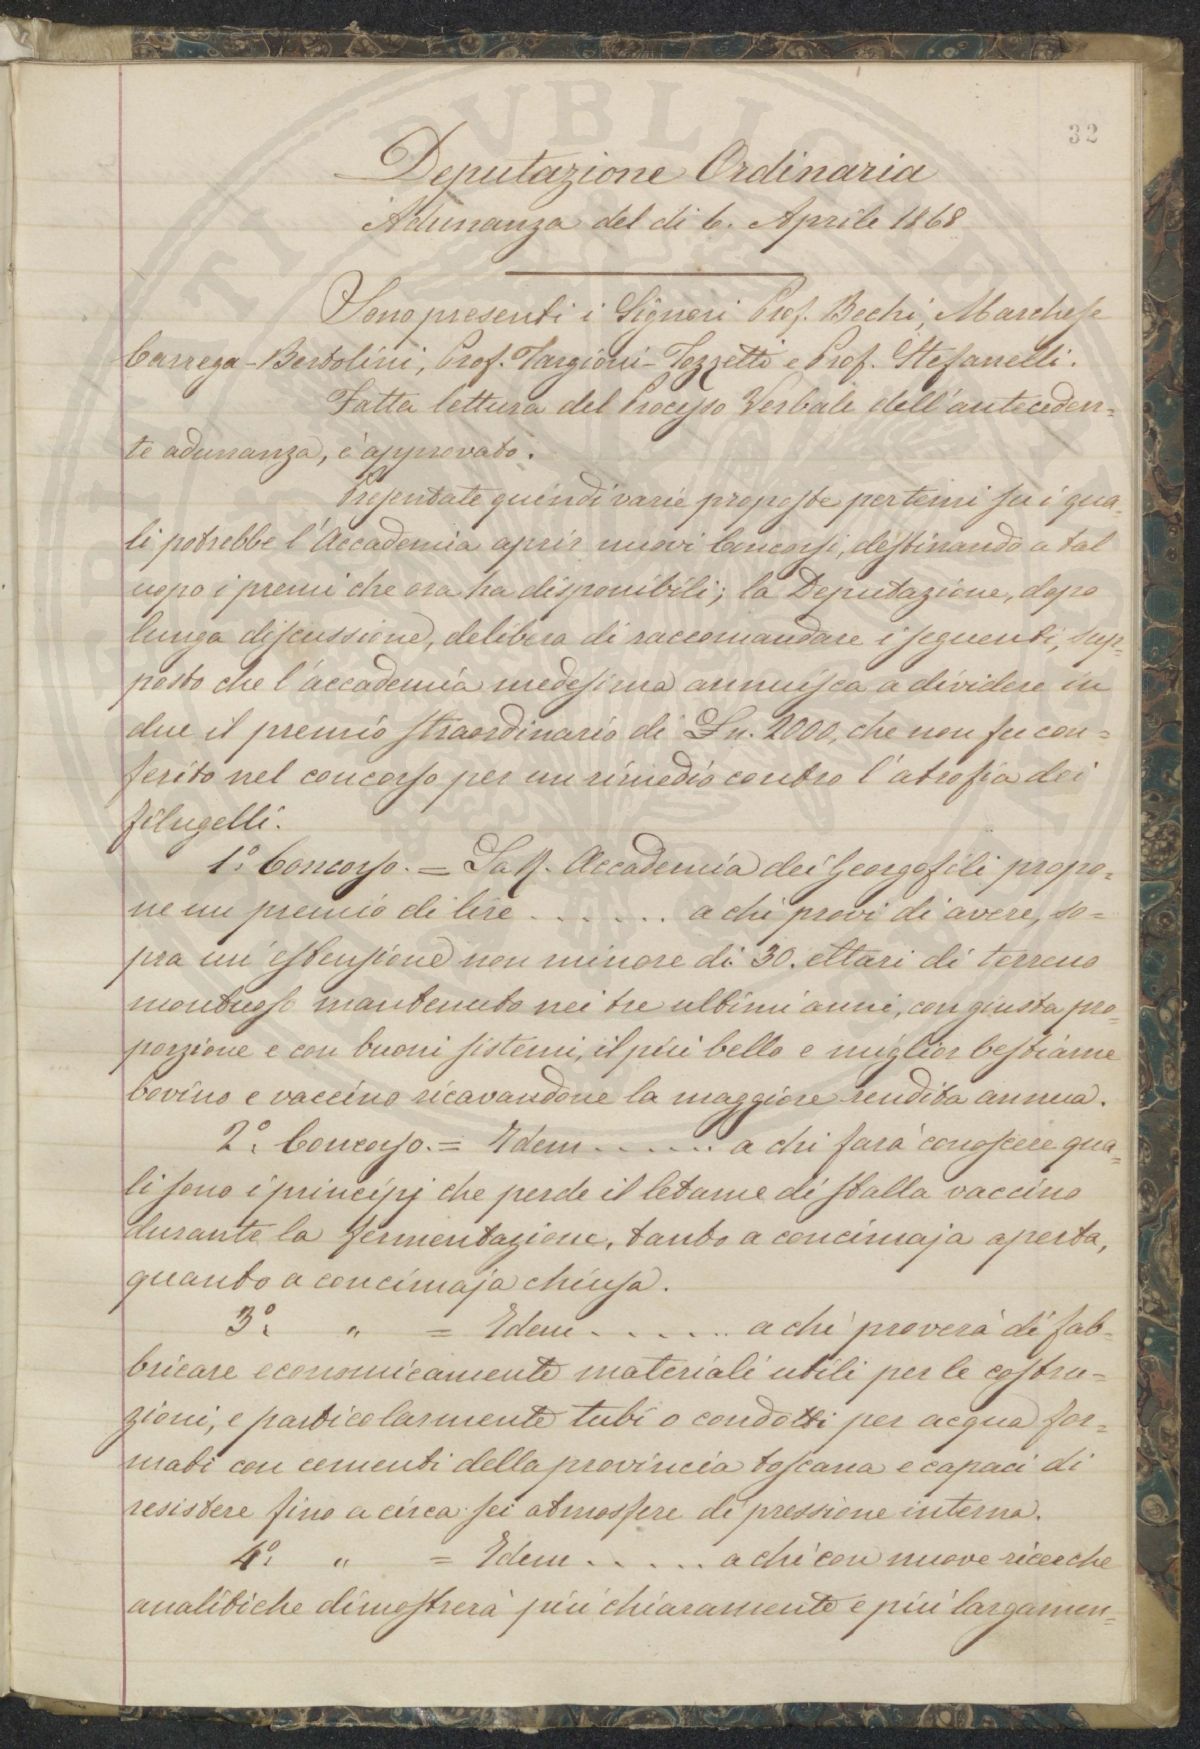 32
Deputazione Ordinaria
Adunanza del di 6. Aprile 1868
Sono presenti i Signori Prof. Bechi, Marchese
Carrega-Bertolini, Prof. Targioni-Tozzetti e Prof. Stefanelli.
Fatta lettura del Processo Verbale dell'anteceden=
te adunanza, è approvato.
Presentate quindi varie proposte per temi su i qua=
li potrebbe l'Accademia aprir nuovi Concorsi, destinando a tal
uopo i premi che ora ha disponibili; la Deputazione, dopo
lunga discussione, delibera di raccomandare i seguenti, sup=
posto che l'accademia medesima annuisca a dividere in
due il premio straordinario di Ln. 2000, che non fu con=
ferito nel concorso per un rimedio contro l'atrofia dei
filugelli.
1.° Concorso. = La R. Accademia dei Georgofili propo=
ne un premio di lire . . . . . . a chi provi di avere, so=
pra un'estensione non minore di 30. ettari di terreno
montuoso mantenuto nei tre ultimi anni, con giusta pro=
porzione e con buoni sistemi, il più bello e miglior bestiame
bovino e vaccino ricavandone la maggiore rendita annua.
2.° Concorso. = Idem . . . . . . a chi farà conoscere qua=
li sono i principj che perde il letame di stalla vaccino
durante la fermentazione, tanto a concimaja aperta,
quanto a concimaja chiusa.
3.° " = Idem . . . . . . a chi proverà di fab=
bricare economicamente materiali utili per le costru=
zioni, e particolarmente tubi o condotti per acqua for=
mati con cementi della provincia toscana e capaci di
resistere fino a circa sei atmosfere di pressione interna.
4.° " = Idem . . . . . a chi con nuove ricerche
analitiche dimostrerà più chiaramente e più largamen=